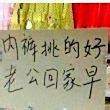 内裤挑的好
老公回家早